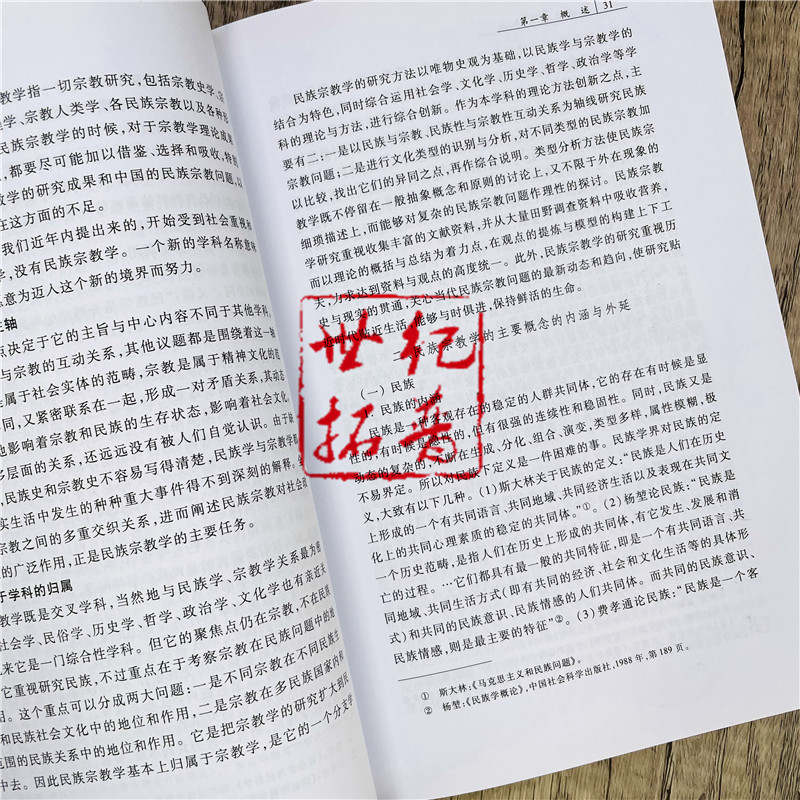 教学指一切宗教研究,包括宗教史学、宗
学、宗教人类学、各民族宗教以及各种形
民族宗教学的时候,对于宗教学理论成果
,都要尽可能加以借鉴、选择和吸收,特别
教学的研究成果和中国的民族宗教问题,以
在这方面的不足。
我们近年内提出来的,开始受到社会重视和
学,没有民族宗教学。一个新的学科名称意味
意为迈入这个新的境界而努力。
主轴
点决定于它的主旨与中心内容不同于其他学科。
与宗教的互动关系,其他议题都是围绕着这一轴
是属于社会实体的范畴,宗教是属于精神文化的范
同,又紧密联系在一起,形成一对矛盾关系,其动态
地影响着宗教和民族的生存状态,影响着社会文化。
多层面的关系,还远远没有被人们自觉认识。由于缺
民族史和宗教史不容易写得清楚,民族学与宗教学都
实生活中发生的种种重大事件得不到深刻的解释。
宗教之间的多重交织关系,进而阐述民族宗教对社会
的广泛作用,正是民族宗教学的主要任务。
于学科的归属
教学既是交叉学科,当然地与民族学、宗教学关系最为密
社会学、民俗学、历史学、哲学、政治学、文化学也有亲近关
来它是一门综合性学科。但它的聚焦点仍在宗教,不在民族
它重视研究民族,不过重点在于考察宗教在民族问题中的地
用。这个重点可以分成两大问题:一是不同宗教在不同民族生
和民族社会文化中的地位和作用,二是宗教在多民族国家内和
范围的民族关系中的地位和作用。它是把宗教学的研究扩大到民
中去。因此民族宗教学基本上归属于宗教学,是它的一个分支学
第一章 概 述 31
民族宗教学的研究方法以唯物史观为基础,以民族学与宗教学的
结合为特色,同时综合运用社会学、文化学、历史学、哲学、政治学等学
科的理论与方法,进行综合创新。作为本学科的理论方法创新之点,主
要有二:一是以民族与宗教、民族性与宗教性互动关系为轴线研究民族
宗教问题;二是进行文化类型的识别与分析,对不同类型的民族宗教加
以比较,找出它们的异同之点,再作综合说明。类型分析方法使民族宗
教学既不停留在一般抽象概念和原则的讨论上,又不限于外在现象的
细琐描述上,而能够对复杂的民族宗教问题作理性的探讨。民族宗教
学研究重视收集丰富的文献资料,并从大量田野调查资料中吸收营养,
而以理论的概括与总结为着力点,在观点的提炼与模型的构建上下工
夫,力求达到资料与观点的高度统一。此外,民族宗教学的研究重视历
史与现实的贯通,关心当代民族宗教问题的最新动态和趋向,使研究贴
近时代贴近生活,能够与时俱进,保持鲜活的生命。
二、民族宗教学的主要概念的内涵与外延
(一)民族
1. 民族的内涵
民族是一种客观存在的稳定的人群共同体,它的存在有时候是显
性的,有时候是隐性的,但有很强的连续性和稳固性。同时,民族又是
动态的复杂的,不断在生成、分化、组合、演变,类型多样,属性模糊,极
不易界定。所以对民族下定义是一件困难的事。民族学界对民族的定
义,大致有以下几种。(1)斯大林关于民族的定义,“民族是人们在历史
上形成的一个有共同语言、共同地域、共同经济生活以及表现在共同文
化上的共同心理素质的稳定的共同体。”①。(2)杨堃论民族:“民族是
一个历史范畴,是指人们在历史上形成的共同体,有它发生、发展和消
亡的过程。…它们都具有最一般的共同特征,即是一个有共同语言、共
同地域、共同生活方式(即有共同的经济、社会和文化生活等的具体形
式)和共同的民族意识、民族情感的人们共同体。而共同的民族意识、
民族情感,则是最主要的特征”②。(3)费孝通论民族:“民族是一个客
① 斯大林:《马克思主义和民族问题》。
② 杨堃:《民族学概论》,中国社会科学出版社,1988年,第189页。
世纪
拓普